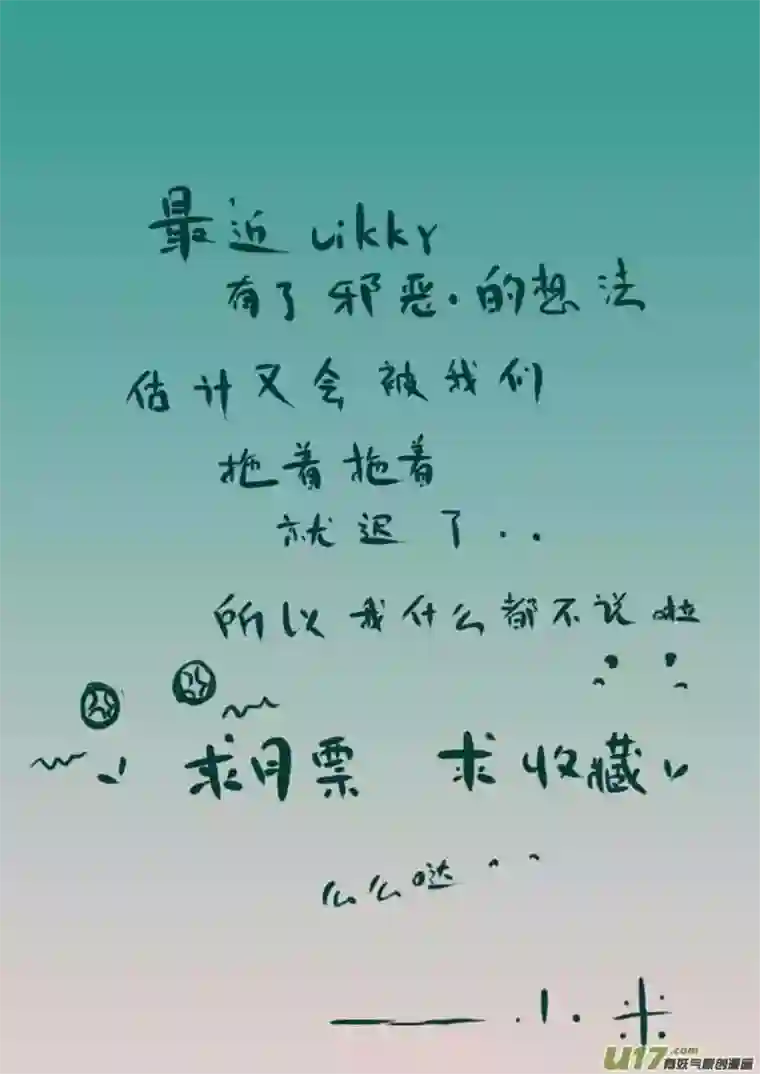 最近 Likky
有了邪恶.的想法
估计又会被我们
拖着拖着
就迟了..
所以我什么都不说啦
求月票 求收藏
么么哒
——小米
U17.com
有妖气原创漫画